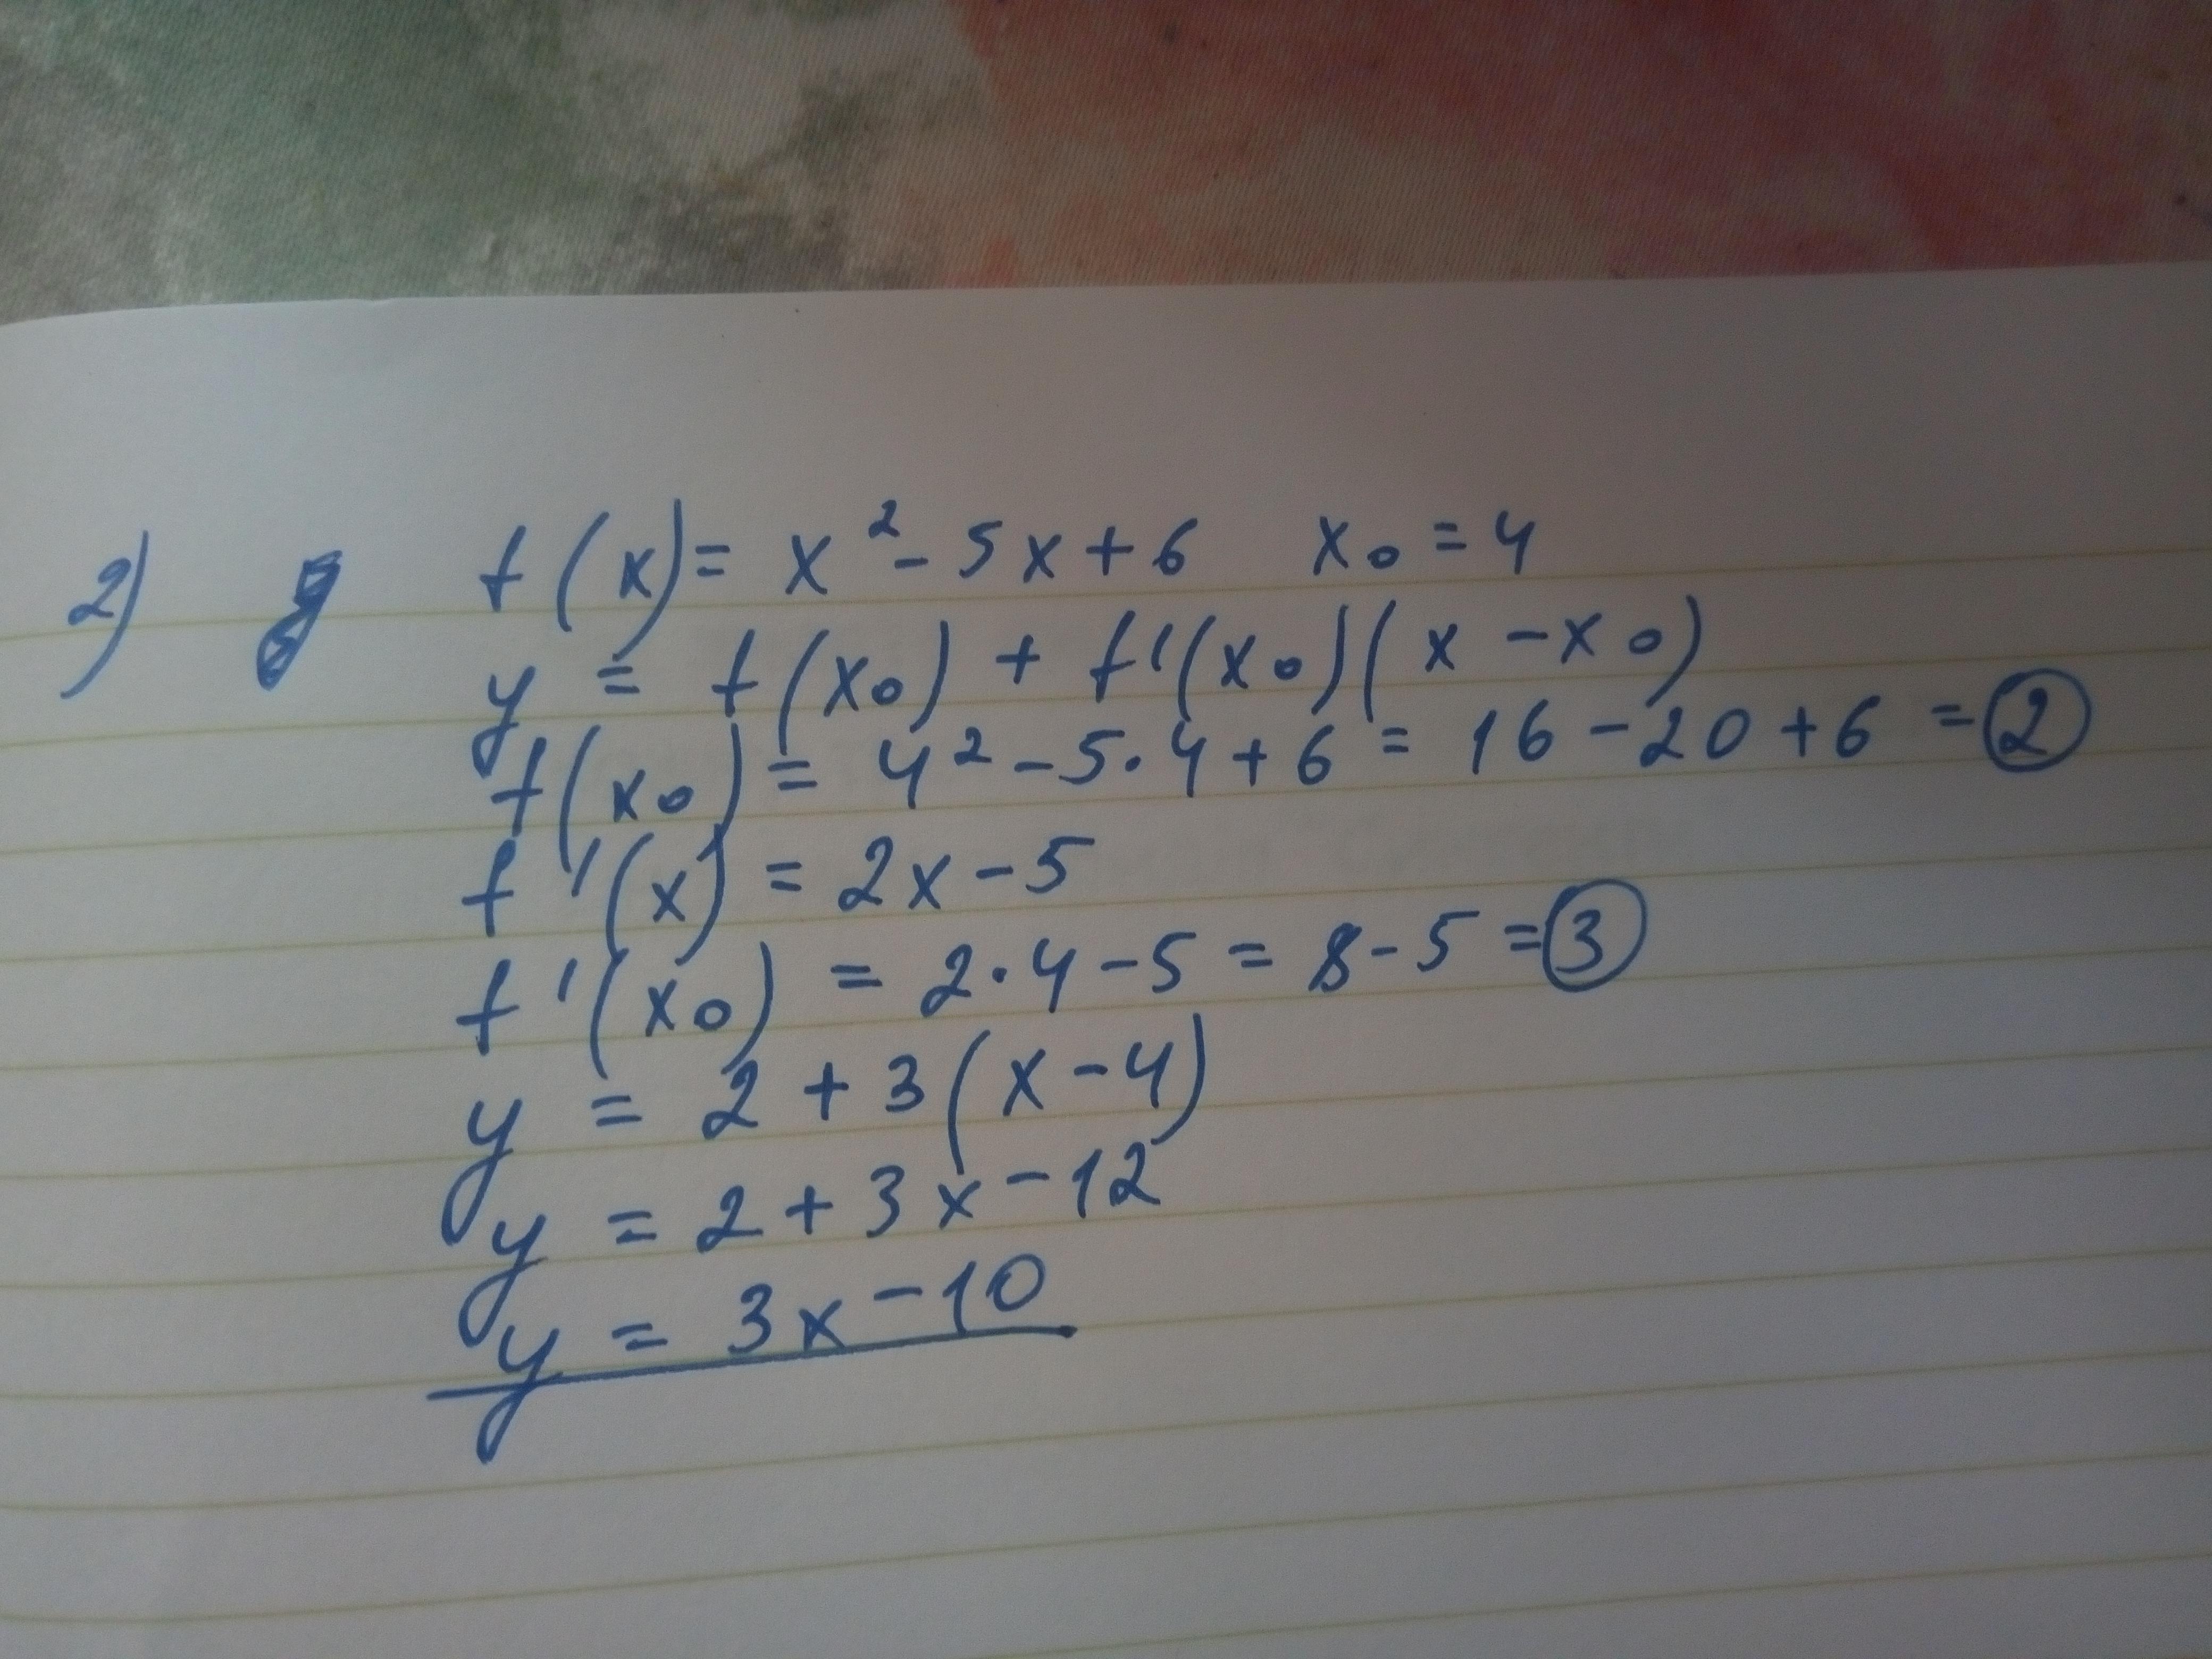 2) f(x) = x² - 5x + 6 x₀ = 4
y = f(x₀) + f'(x₀)(x - x₀)
f(x₀) = 4² - 5·4 + 6 = 16 - 20 + 6 = 2
f'(x) = 2x - 5
f'(x₀) = 2·4 - 5 = 8 - 5 = 3
y = 2 + 3(x - 4)
y = 2 + 3x - 12
y = 3x - 10